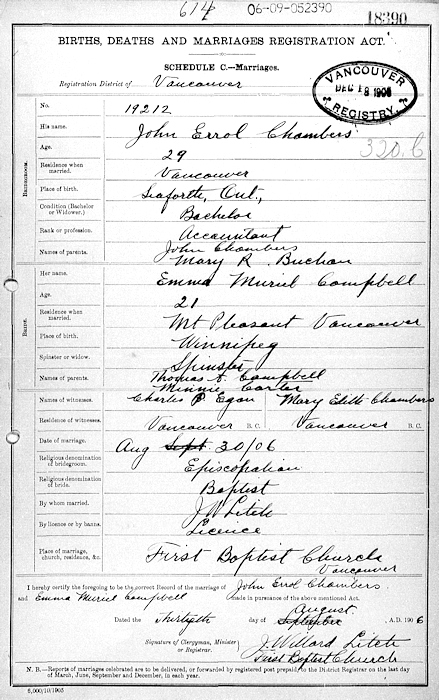 614
06-09-052390
18390
BIRTHS, DEATHS AND MARRIAGES REGISTRATION ACT.
SCHEDULE C.—Marriages.
Registration District of Vancouver
VANCOUVER
DEC 18 1906
REGISTRY.
320.6
BRIDEGROOM.
No. 19212
His name. John Errol Chambers
Age. 29
Residence when married. Vancouver
Place of birth. Seaforth, Ont.,
Condition (Bachelor or Widower.) Bachelor
Rank or profession. Accountant
Names of parents. John Chambers
Mary R. Buchan
BRIDE.
Her name. Emma Muriel Campbell
Age. 21
Residence when married. Mt Pleasant Vancouver
Place of birth. Winnipeg
Spinster or widow. Spinster
Names of parents. Thomas Campbell
Minnie Carter
Names of witnesses. Charles P. Egan Mary Edith Chambers
Residence of witnesses. Vancouver B.C. Vancouver B.C.
Date of marriage. Aug Sept. 30/06
Religious denomination of bridegroom. Episcopalian
Religious denomination of bride. Baptist
By whom married. J W Litch
By licence or by banns. Licence
Place of marriage, church, residence, &c. First Baptist Church
Vancouver
I hereby certify the foregoing to be the correct Record of the marriage of John Errol Chambers
and Emma Muriel Campbell made in pursuance of the above mentioned Act.
August
Dated the thirtieth day of September A.D. 1906
Signature of Clergyman, Minister or Registrar. J. Willard Litch
First Baptist Church
N. B.—Reports of marriages celebrated are to be delivered, or forwarded by registered post prepaid, to the District Registrar on the last day
of March, June, September and December, in each year.
5,000/10/1905